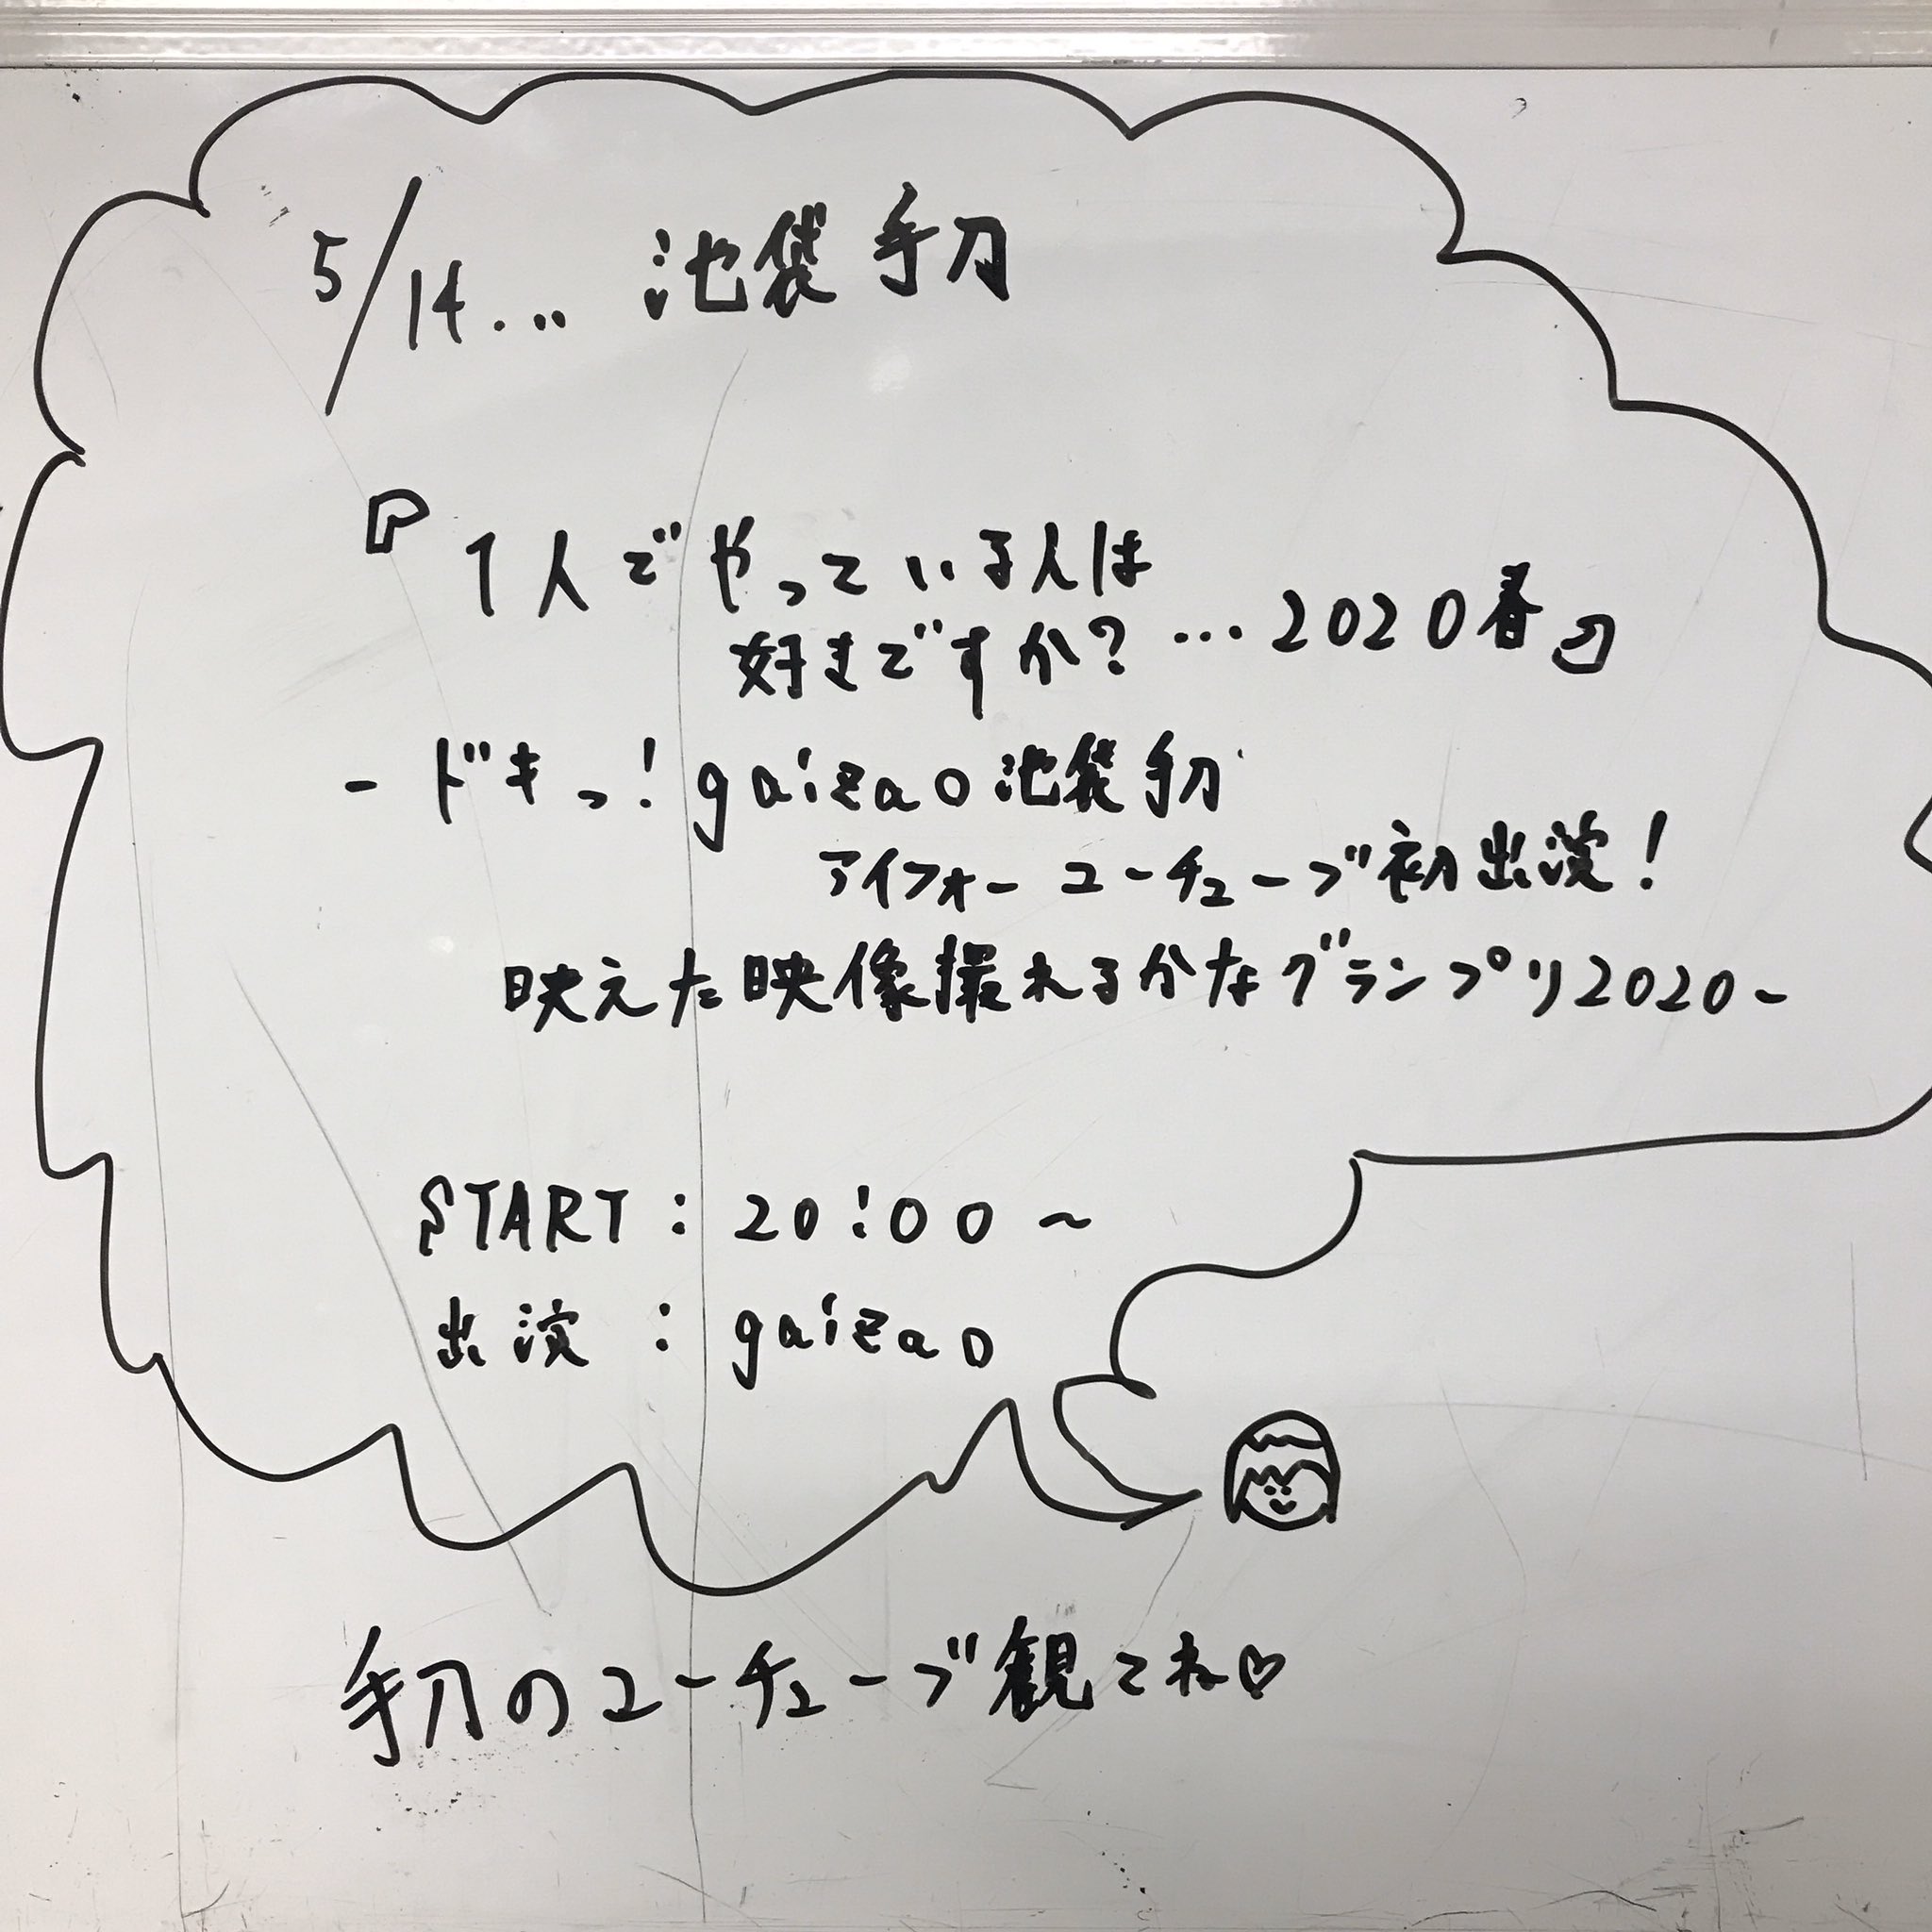 5/14... 池袋手刀
『1人でやっている人は
好きですか?…2020春』
-ドキっ!gaizao池袋手刀
アイフォーユーチューブ初出演!
映えた映像撮れるかなグランプリ2020~
START:20:00~
出演:gaizao
手刀のユーチューブ観てね♡